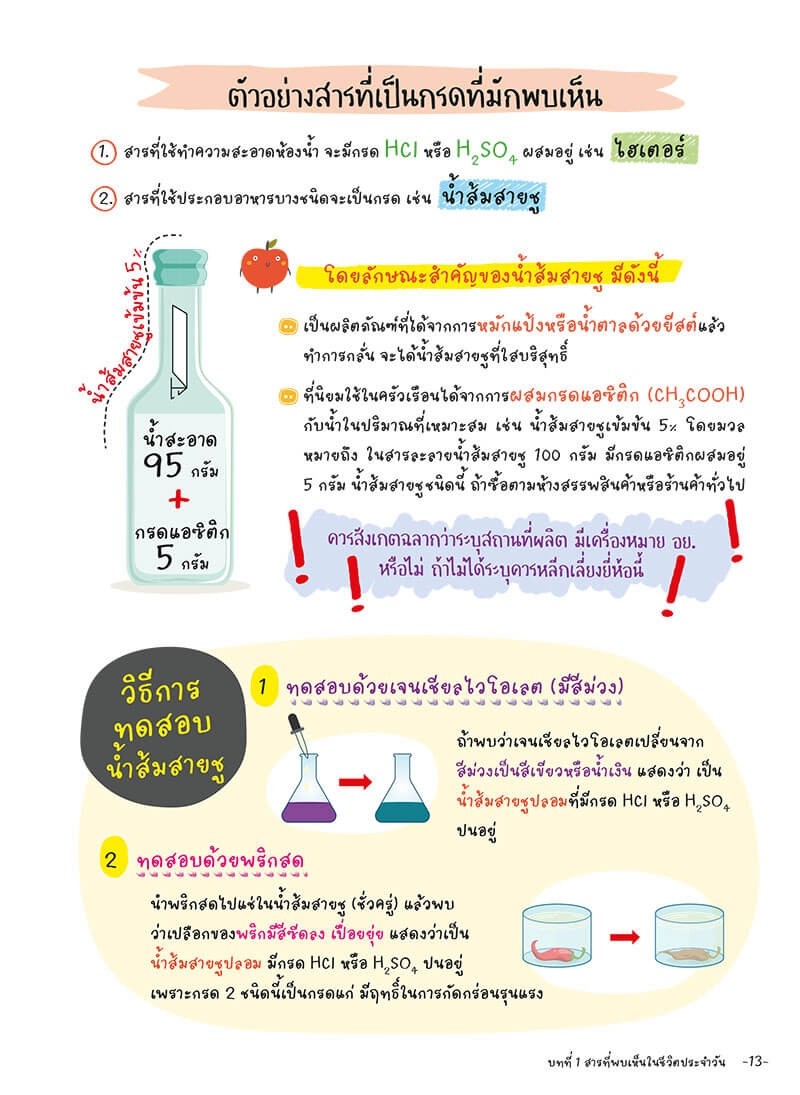 ตัวอย่างสารที่เป็นกรดที่มักพบเห็น
1. สารที่ใช้ทำความสะอาดห้องน้ำ จะมีกรด HCl หรือ H₂SO₄ ผสมอยู่ เช่น ไฮเตอร์
2. สารที่ใช้ประกอบอาหารบางชนิดจะเป็นกรด เช่น น้ำส้มสายชู
น้ำส้มสายชูเข้มข้น 5%
น้ำสะอาด
95 กรัม
+
กรดแอซิติก
5 กรัม
โดยลักษณะสำคัญของน้ำส้มสายชู มีดังนี้
เป็นผลิตภัณฑ์ที่ได้จากการหมักแป้งหรือน้ำตาลด้วยยีสต์แล้ว
ทำการกลั่น จะได้น้ำส้มสายชูที่ใสบริสุทธิ์
ที่นิยมใช้ในครัวเรือนได้จากการผสมกรดแอซิติก (CH₃COOH)
กับน้ำในปริมาณที่เหมาะสม เช่น น้ำส้มสายชูเข้มข้น 5% โดยมวล
หมายถึง ในสารละลายน้ำส้มสายชู 100 กรัม มีกรดแอซิติกผสมอยู่
5 กรัม น้ำส้มสายชูชนิดนี้ ถ้าซื้อตามห้างสรรพสินค้าหรือร้านค้าทั่วไป
ควรสังเกตฉลากว่าระบุสถานที่ผลิต มีเครื่องหมาย อย.
หรือไม่ ถ้าไม่ได้ระบุควรหลีกเลี่ยงยี่ห้อนี้
วิธีการ
ทดสอบ
น้ำส้มสายชู
1 ทดสอบด้วยเจนเชียลไวโอเลต (มีสีม่วง)
ถ้าพบว่าเจนเชียลไวโอเลตเปลี่ยนจาก
สีม่วงเป็นสีเขียวหรือน้ำเงิน แสดงว่า เป็น
น้ำส้มสายชูปลอมที่มีกรด HCl หรือ H₂SO₄
ปนอยู่
2 ทดสอบด้วยพริกสด
นำพริกสดไปแช่ในน้ำส้มสายชู (ชั่วครู่) แล้วพบ
ว่าเปลือกของพริกมีสีซีดลง เปื่อยยุ่ย แสดงว่าเป็น
น้ำส้มสายชูปลอม มีกรด HCl หรือ H₂SO₄ ปนอยู่
เพราะกรด 2 ชนิดนี้เป็นกรดแก่ มีฤทธิ์ในการกัดกร่อนรุนแรง
บทที่ 1 สารที่พบเห็นในชีวิตประจำวัน -13-